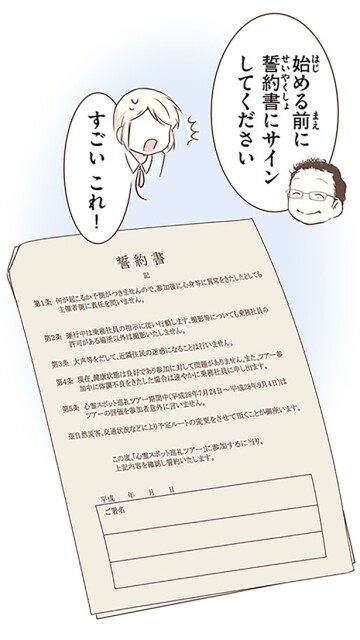 始める前に
誓約書にサイン
してください
はじ
まえ
せいやくしょ
すごい これ!
誓約書
記
第1条 何が起こるか予測がつきませんので、参加後に心身等に異常をきたしたとしても
主催者側に責任を問いません。
第2条 運行中は乗務社員の指示に従い行動します。撮影等についても乗務社員の
許可がある場所以外は撮影いたしません。
第3条 大声等をだして、近隣住民の迷惑になることは行いません。
第4条 現在、健康状態は良好であり参加に対して問題がありません。また、ツアー参
加中に体調不良をきたした場合は速やかに乗務社員に申し出ます。
第5条 心霊スポット巡礼ツアー期間中(平成28年7月24日〜平成28年9月4日)は
ツアーの評価を参加者意外に言いません。
※自然災害、交通状況などにより予定ルートの変更をさせて頂くことが御座います。
この度、「心霊スポット巡礼ツアー」に参加するに当り、
上記内容を確認し誓約いたします。
平成 年 月 日
ご署名